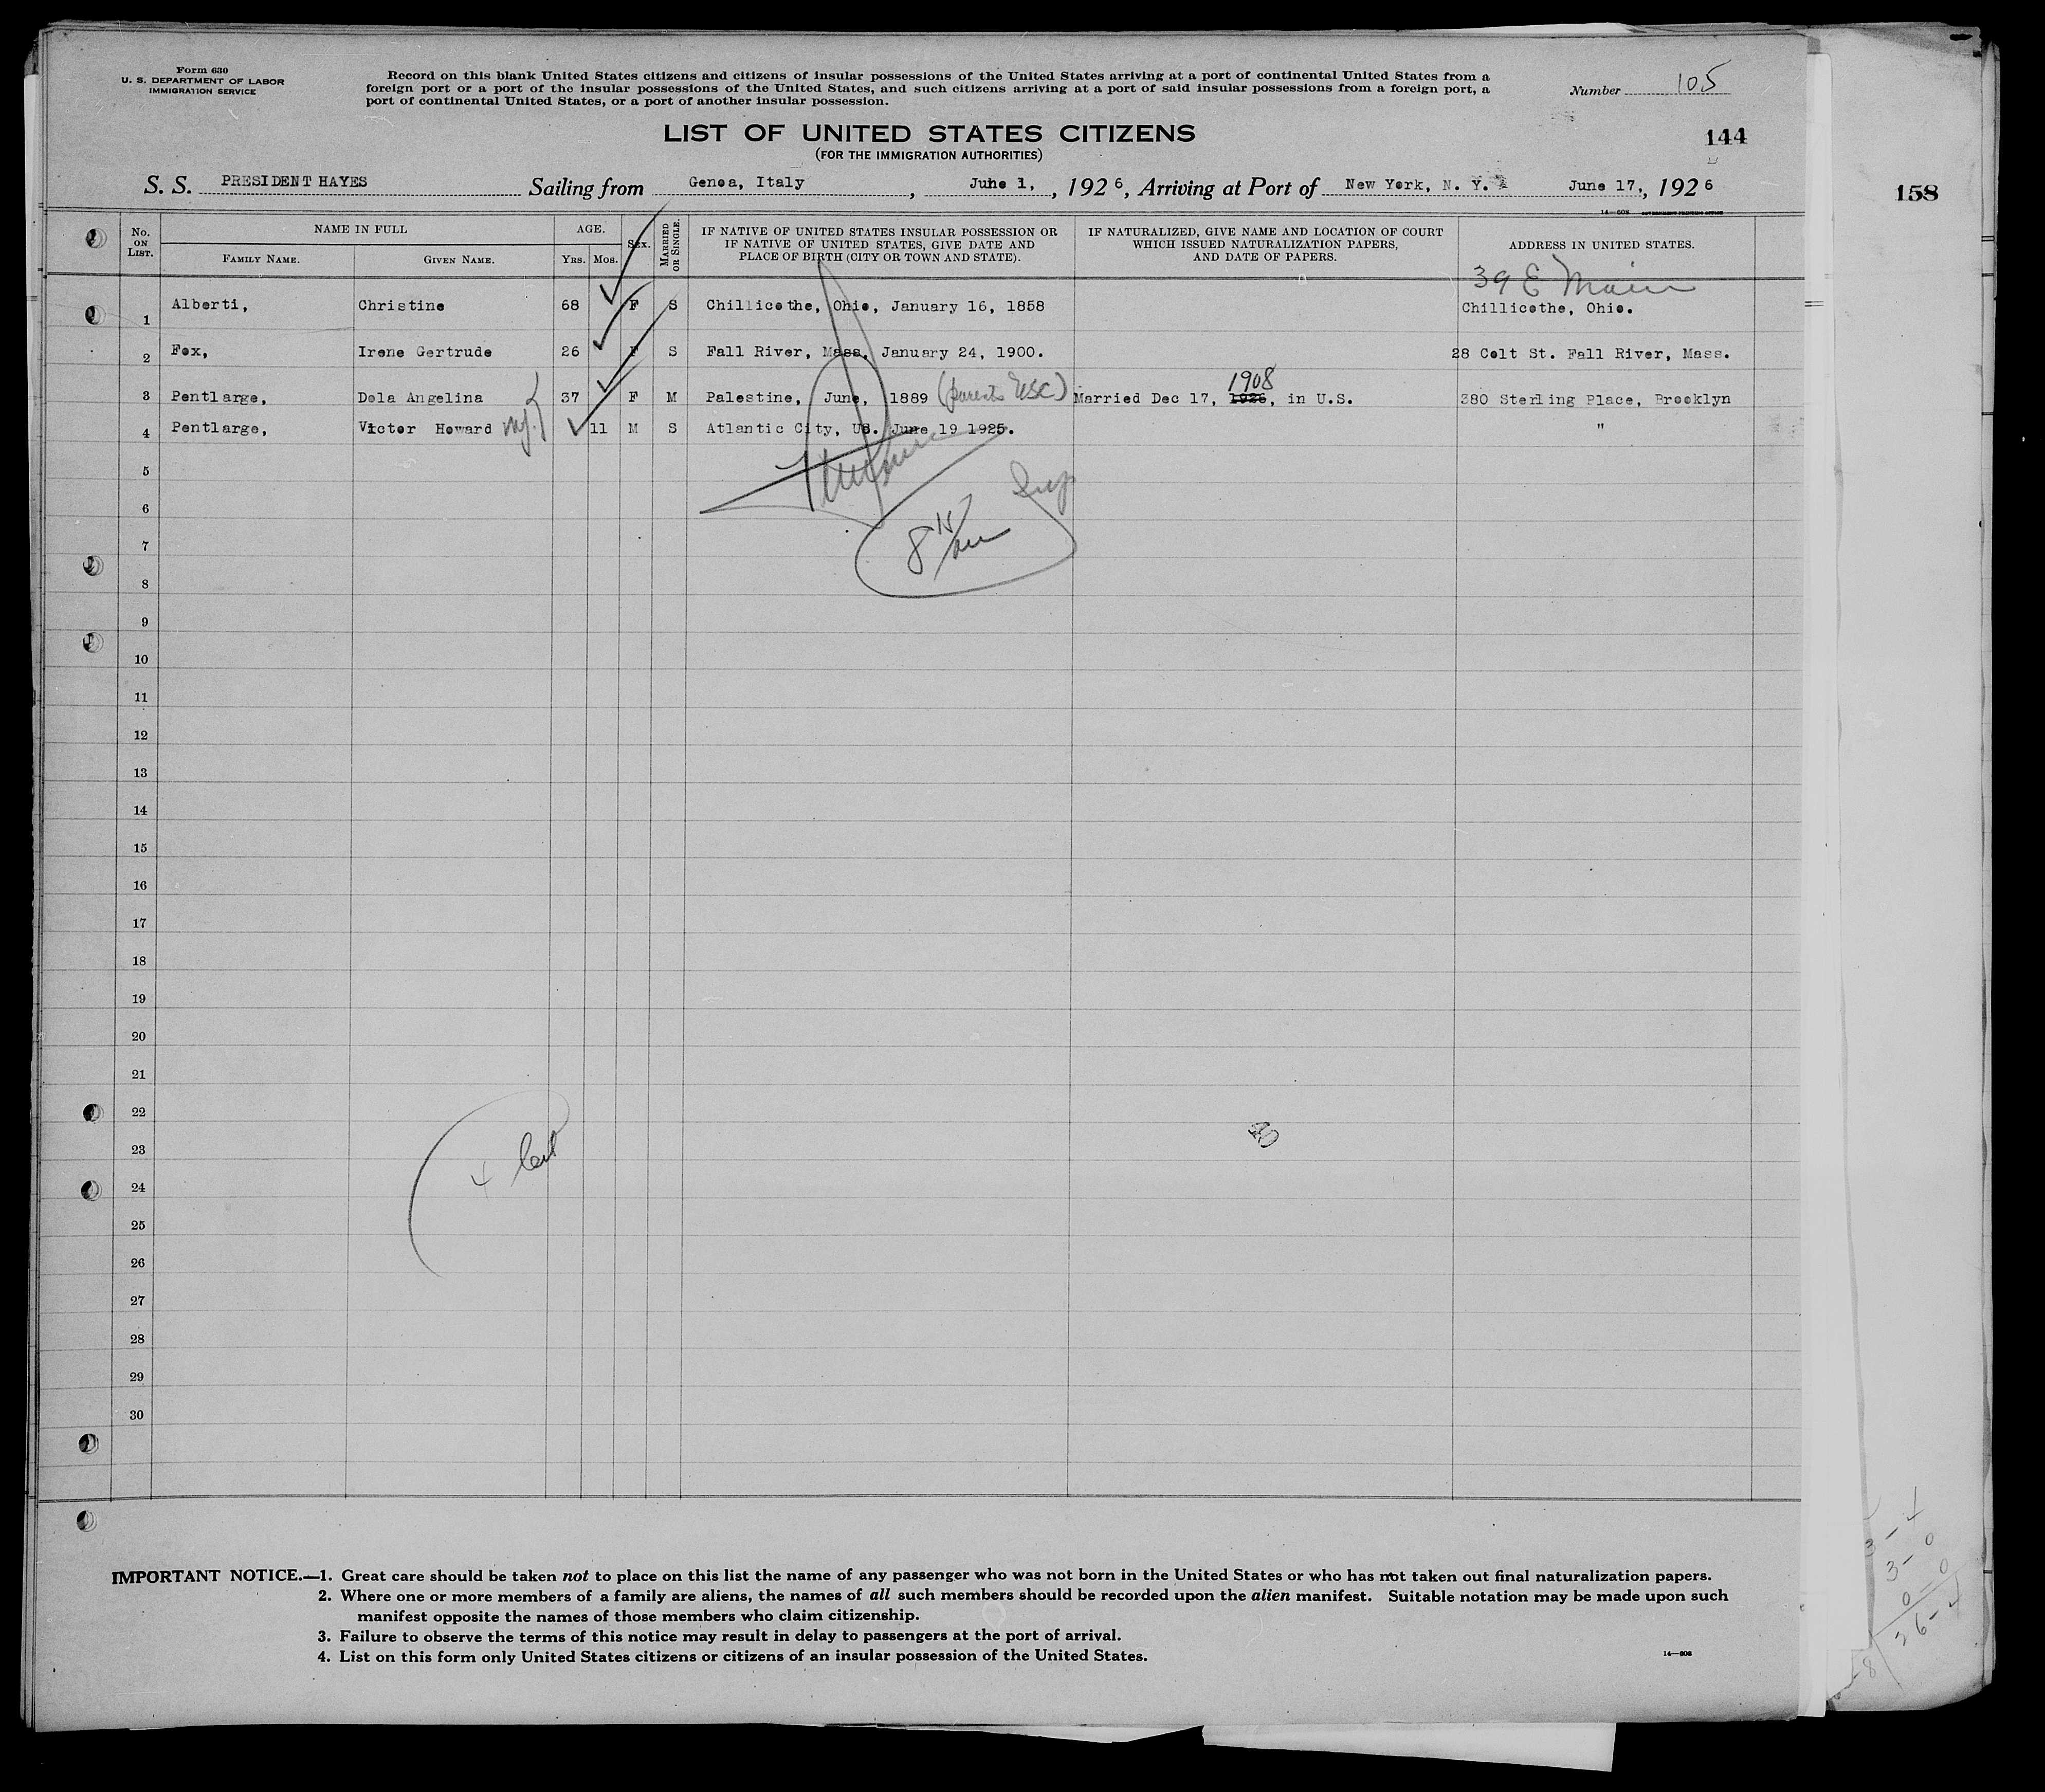 Form 630
U. S. DEPARTMENT OF LABOR
IMMIGRATION SERVICE
Record on this blank United States citizens and citizens of insular possessions of the United States arriving at a port of continental United States from a
foreign port or a port of the insular possessions of the United States, and such citizens arriving at a port of said insular possessions from a foreign port, a
port of continental United States, or a port of another insular possession.
Number 105
LIST OF UNITED STATES CITIZENS
(FOR THE IMMIGRATION AUTHORITIES)
144
158
S. S. PRESIDENT HAYES Sailing from Genoa, Italy, June 1,, 1926, Arriving at Port of New York, N. Y. June 17,, 1926
14—608 GOVERNMENT PRINTING OFFICE
No. ON LIST. NAME IN FULL AGE. SEX. MARRIED OR SINGLE. IF NATIVE OF UNITED STATES INSULAR POSSESSION OR IF NATIVE OF UNITED STATES, GIVE DATE AND PLACE OF BIRTH (CITY OR TOWN AND STATE). IF NATURALIZED, GIVE NAME AND LOCATION OF COURT WHICH ISSUED NATURALIZATION PAPERS, AND DATE OF PAPERS. ADDRESS IN UNITED STATES.
FAMILY NAME. GIVEN NAME. YRS. MOS.
39 E Main
1 Alberti, Christine 68 F S Chillicothe, Ohio, January 16, 1858 Chillicothe, Ohio.
2 Fox, Irene Gertrude 26 F S Fall River, Mass, January 24, 1900. 28 Colt St. Fall River, Mass.
1908
3 Pentlarge, Dola Angelina 37 F M Palestine, June, 1889 (parents USC) Married Dec 17, 1926, in U.S. 380 Sterling Place, Brooklyn
4 Pentlarge, Victor Howard 11 M S Atlantic City, US. June 19 1925. "
5
6
7
8
9
10
11
12
13
14
15
16
17
18
19
20
21
22
23
24
25
26
27
28
29
30
IMPORTANT NOTICE.—1. Great care should be taken not to place on this list the name of any passenger who was not born in the United States or who has not taken out final naturalization papers.
2. Where one or more members of a family are aliens, the names of all such members should be recorded upon the alien manifest. Suitable notation may be made upon such
manifest opposite the names of those members who claim citizenship.
3. Failure to observe the terms of this notice may result in delay to passengers at the port of arrival.
4. List on this form only United States citizens or citizens of an insular possession of the United States.
14—608